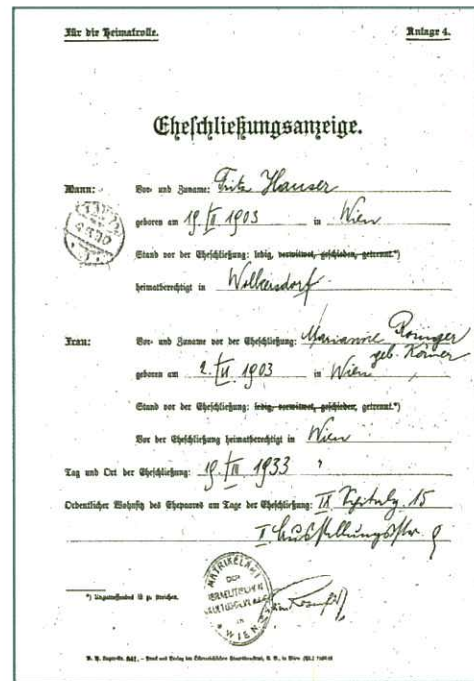 Für die Heimatrolle. Anlage 4.
Eheschließungsanzeige.
Mann: Vor- und Zuname: Fritz Hauser
geboren am 19. 1903 in Wien
Stand vor der Eheschließung: ledig, verwitwet, geschieden, getrennt.*)
heimatberechtigt in
Frau: Vor- und Zuname vor der Eheschließung: Marianne
geb. Körner
geboren am 2. 1903 in Wien
Stand vor der Eheschließung: ledig, verwitwet, geschieden, getrennt.*)
Vor der Eheschließung heimatberechtigt in Wien
Tag und Ort der Eheschließung: 19. 1933
Ordentlicher Wohnsitz des Ehepaares am Tage der Eheschließung: IX 15
Ausstellungsstr.
MATRIKELAMT
DER
ISRAELITISCHEN
KULTUSGEMEINDE
in
WIEN
*) Unzutreffendes ist zu streichen.